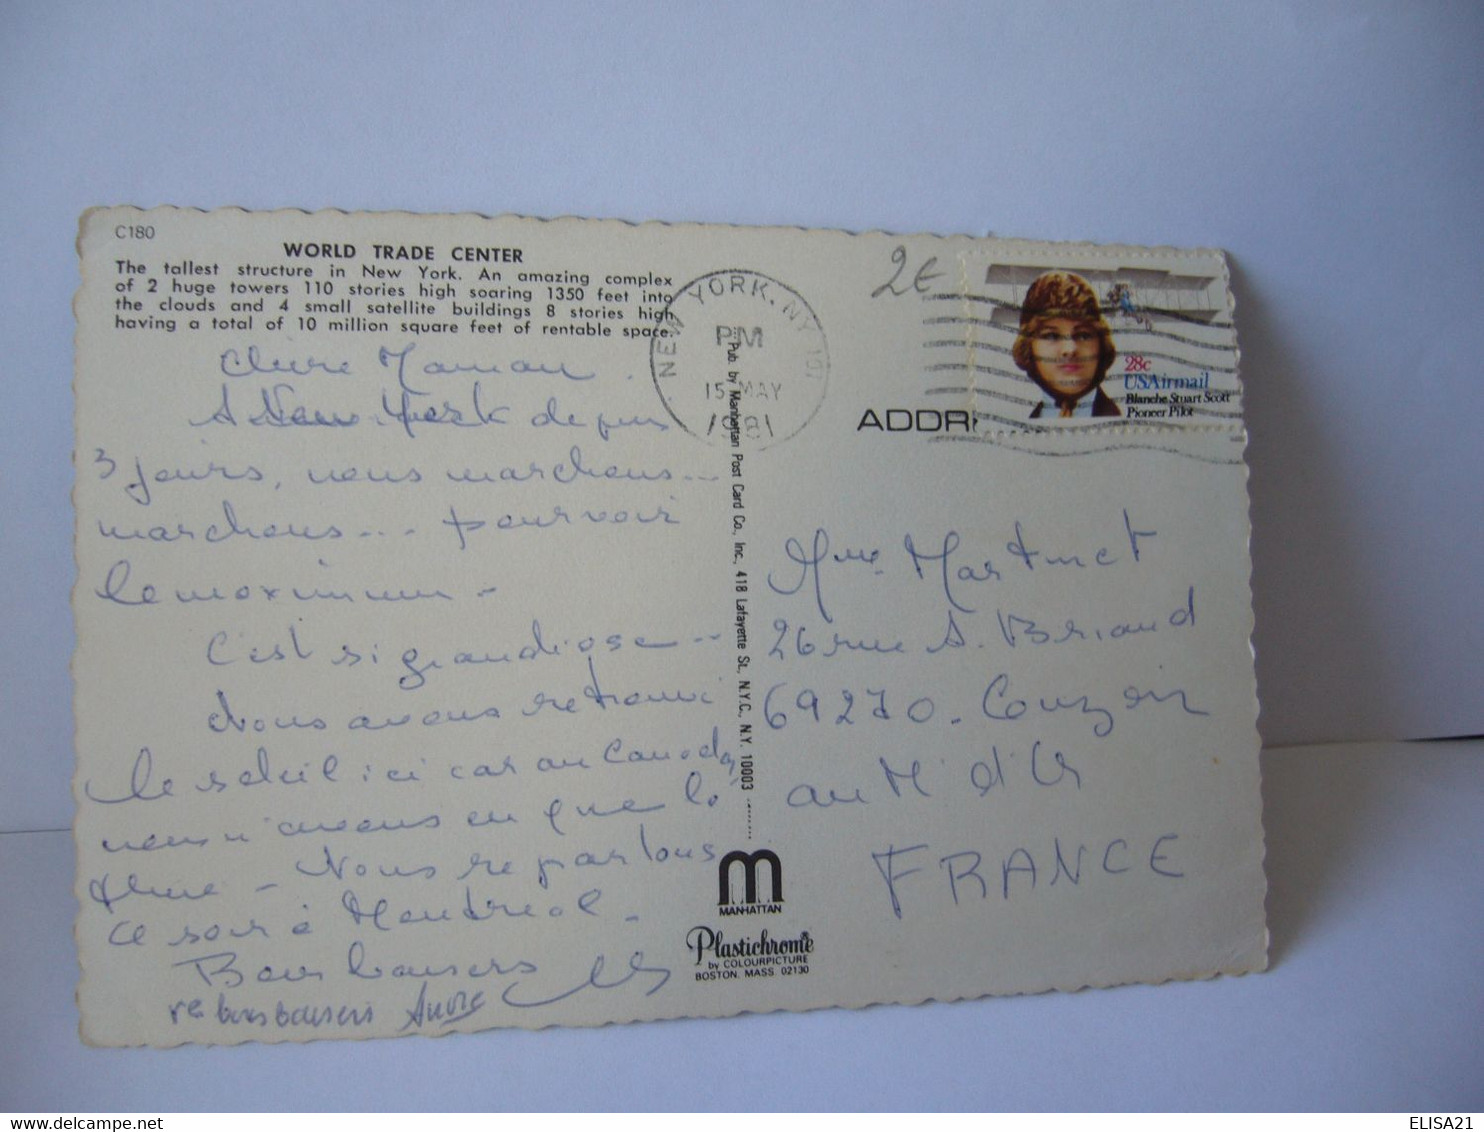 C180
WORLD TRADE CENTER
The tallest structure in New York. An amazing complex
of 2 huge towers 110 stories high soaring 1350 feet into
the clouds and 4 small satellite buildings 8 stories high
having a total of 10 million square feet of rentable space.
Chère Maman.
A New York depuis
3 jours, nous marchons...
marchons... pour voir
le maximum -
C'est si grandiose...
Nous avons retrouvé
le soleil ici car au Canada
nous n'avons eu que la
pluie - Nous repartons
ce soir à Montréal.
Bons baisers
re bons baisers André
Pub. by Manhattan Post Card Co., Inc., 418 Lafayette St., N.Y.C., N.Y. 10003
MANHATTAN
Plastichrome
by COLOURPICTURE
BOSTON. MASS. 02130
NEW YORK, NY 101
PM
15 MAY
1981
2€
28c
USAirmail
Blanche Stuart Scott
Pioneer Pilot
ADDR
Mme Martinet
26 rue A. Briand
69270 - Couzon
au Mt d'Or
FRANCE
delcampe.net
ELISA21